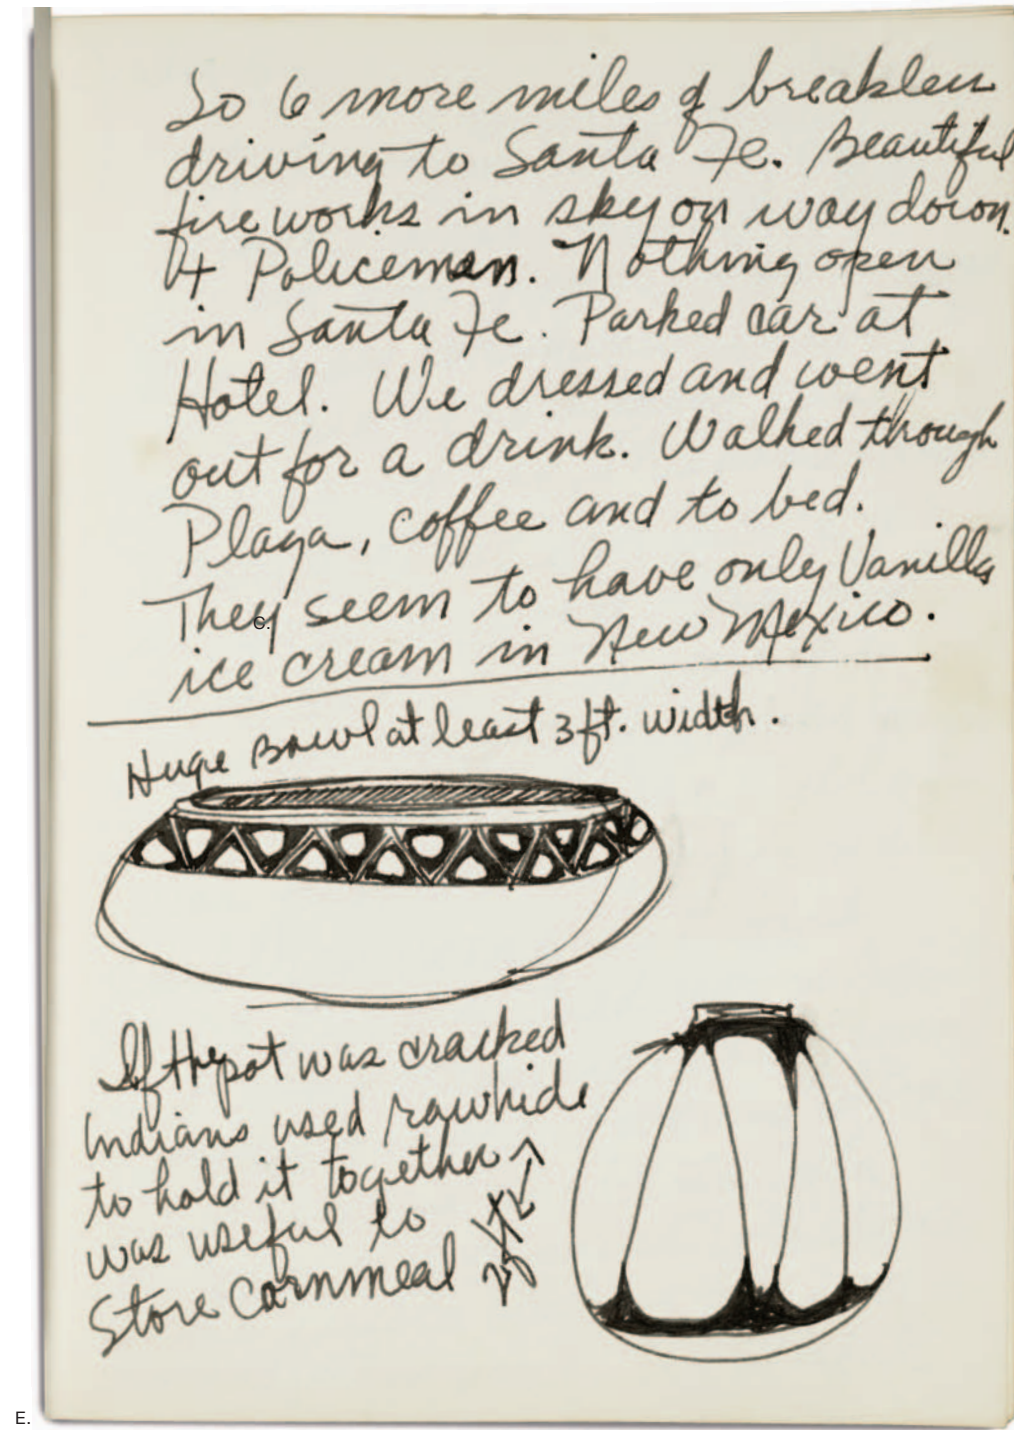 So 6 more miles of breakless
driving to Santa Fe. Beautiful
fireworks in sky on way down.
4 Policemen. Nothing open
in Santa Fe. Parked car at
Hotel. We dressed and went
out for a drink. Walked though
Plaza, coffee and to bed.
They seem to have only Vanilla
C.
ice cream in New Mexico.
Huge Bowl at least 3 ft. width.
If the pot was cracked
Indians used rawhide
to hold it together
was useful to
Store Cornmeal
E.